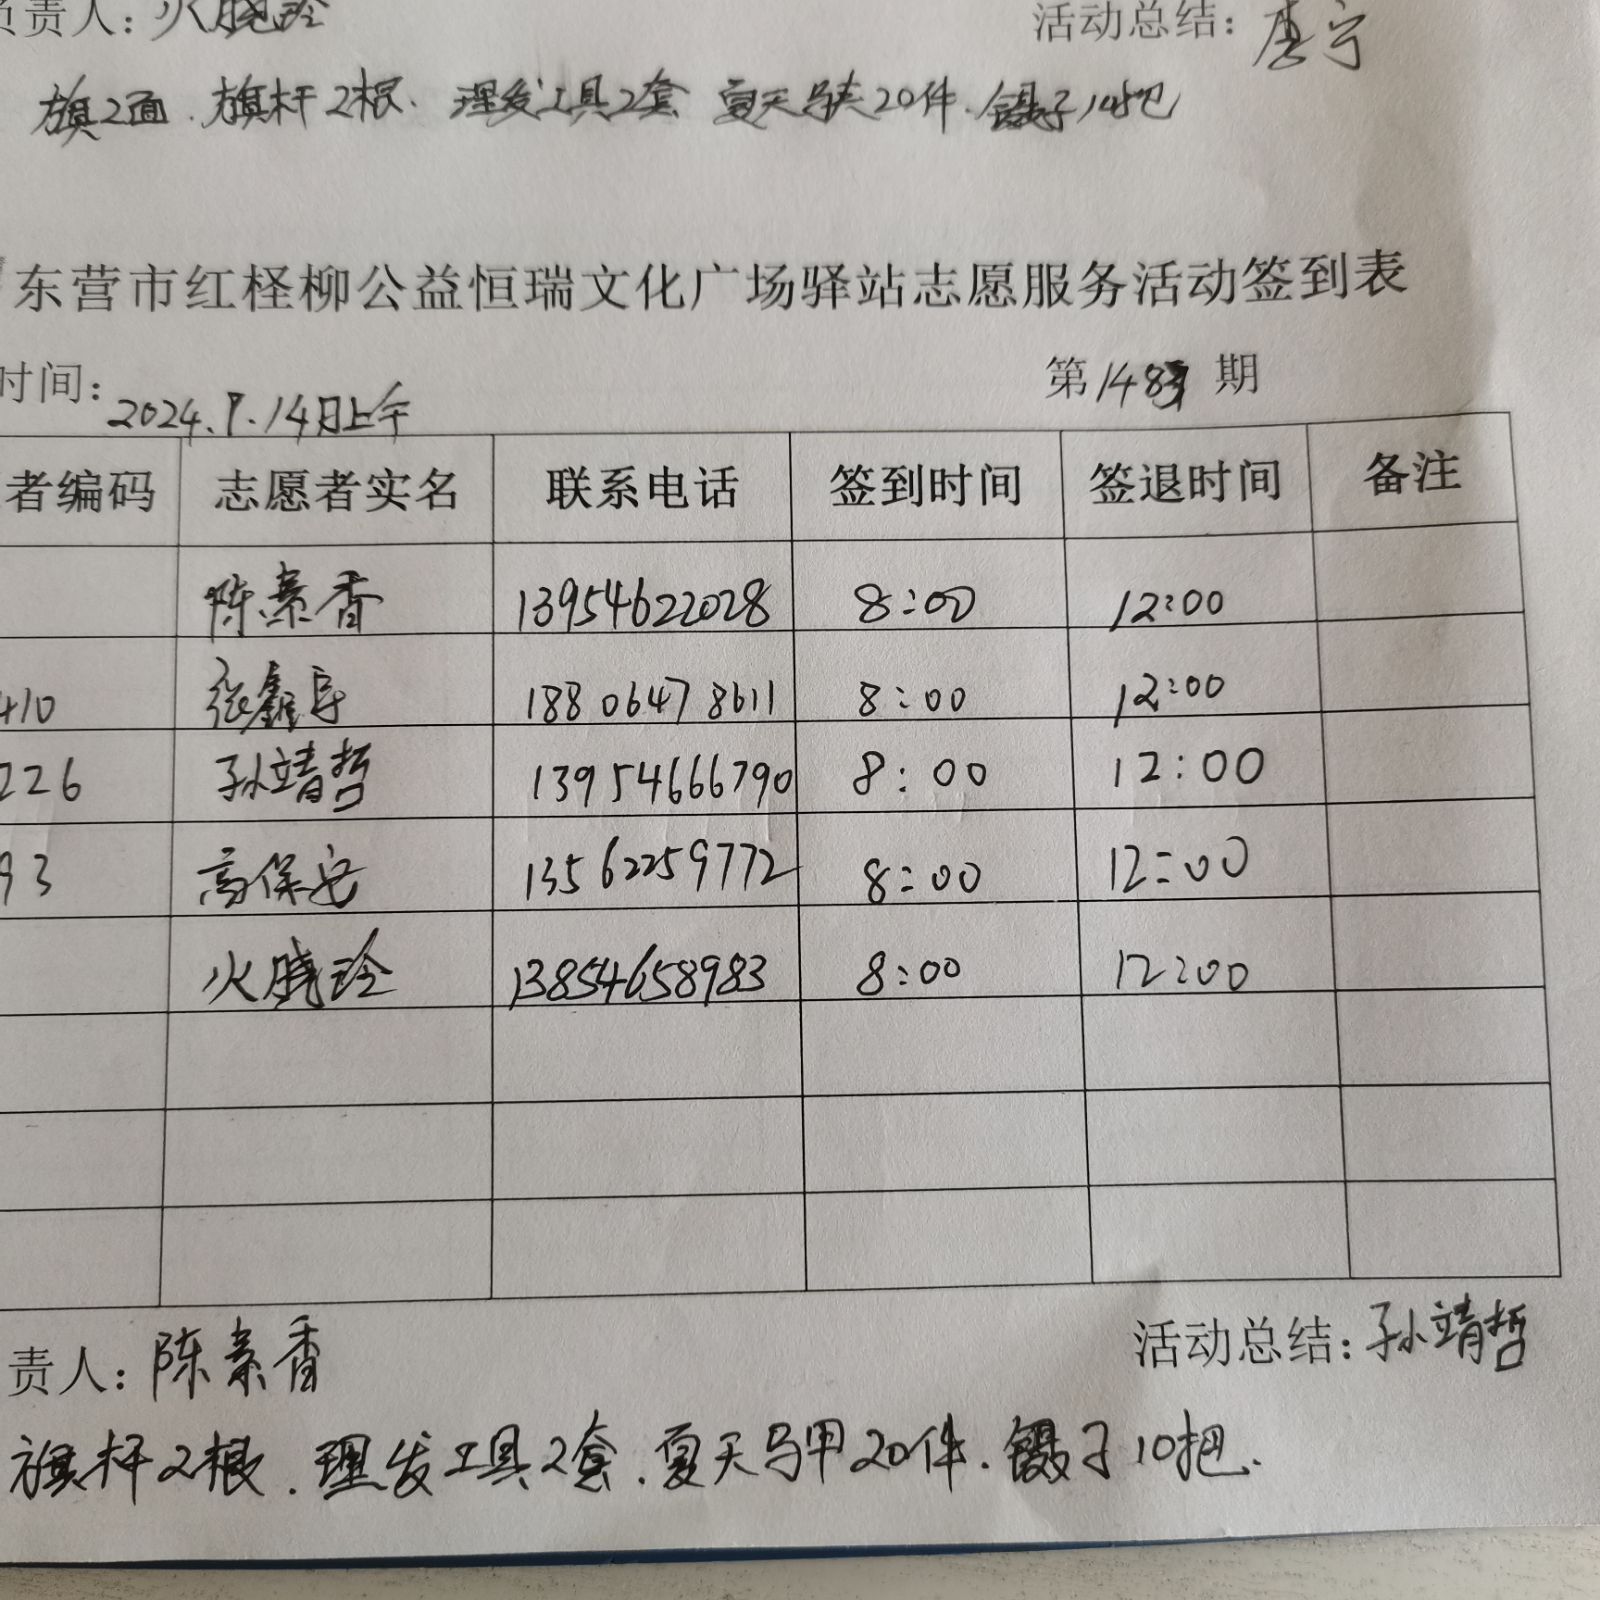 负责人：火晓玲 活动总结：唐宁
旗2面．旗杆2根．理发工具2套 夏天马夹20件．镊子10把
东营市红柽柳公益恒瑞文化广场驿站志愿服务活动签到表
时间：2024.9.14日上午 第1483期
者编码 志愿者实名 联系电话 签到时间 签退时间 备注
陈素香 13954622028 8:00 12:00
410 张鑫宇 18806478611 8:00 12:00
226 孙靖哲 13954666790 8:00 12:00
93 高保安 13562259772 8:00 12:00
火晓玲 13854658983 8:00 12:00
责人：陈素香 活动总结：孙靖哲
旗杆2根．理发工具2套．夏天马甲20件．镊子10把．